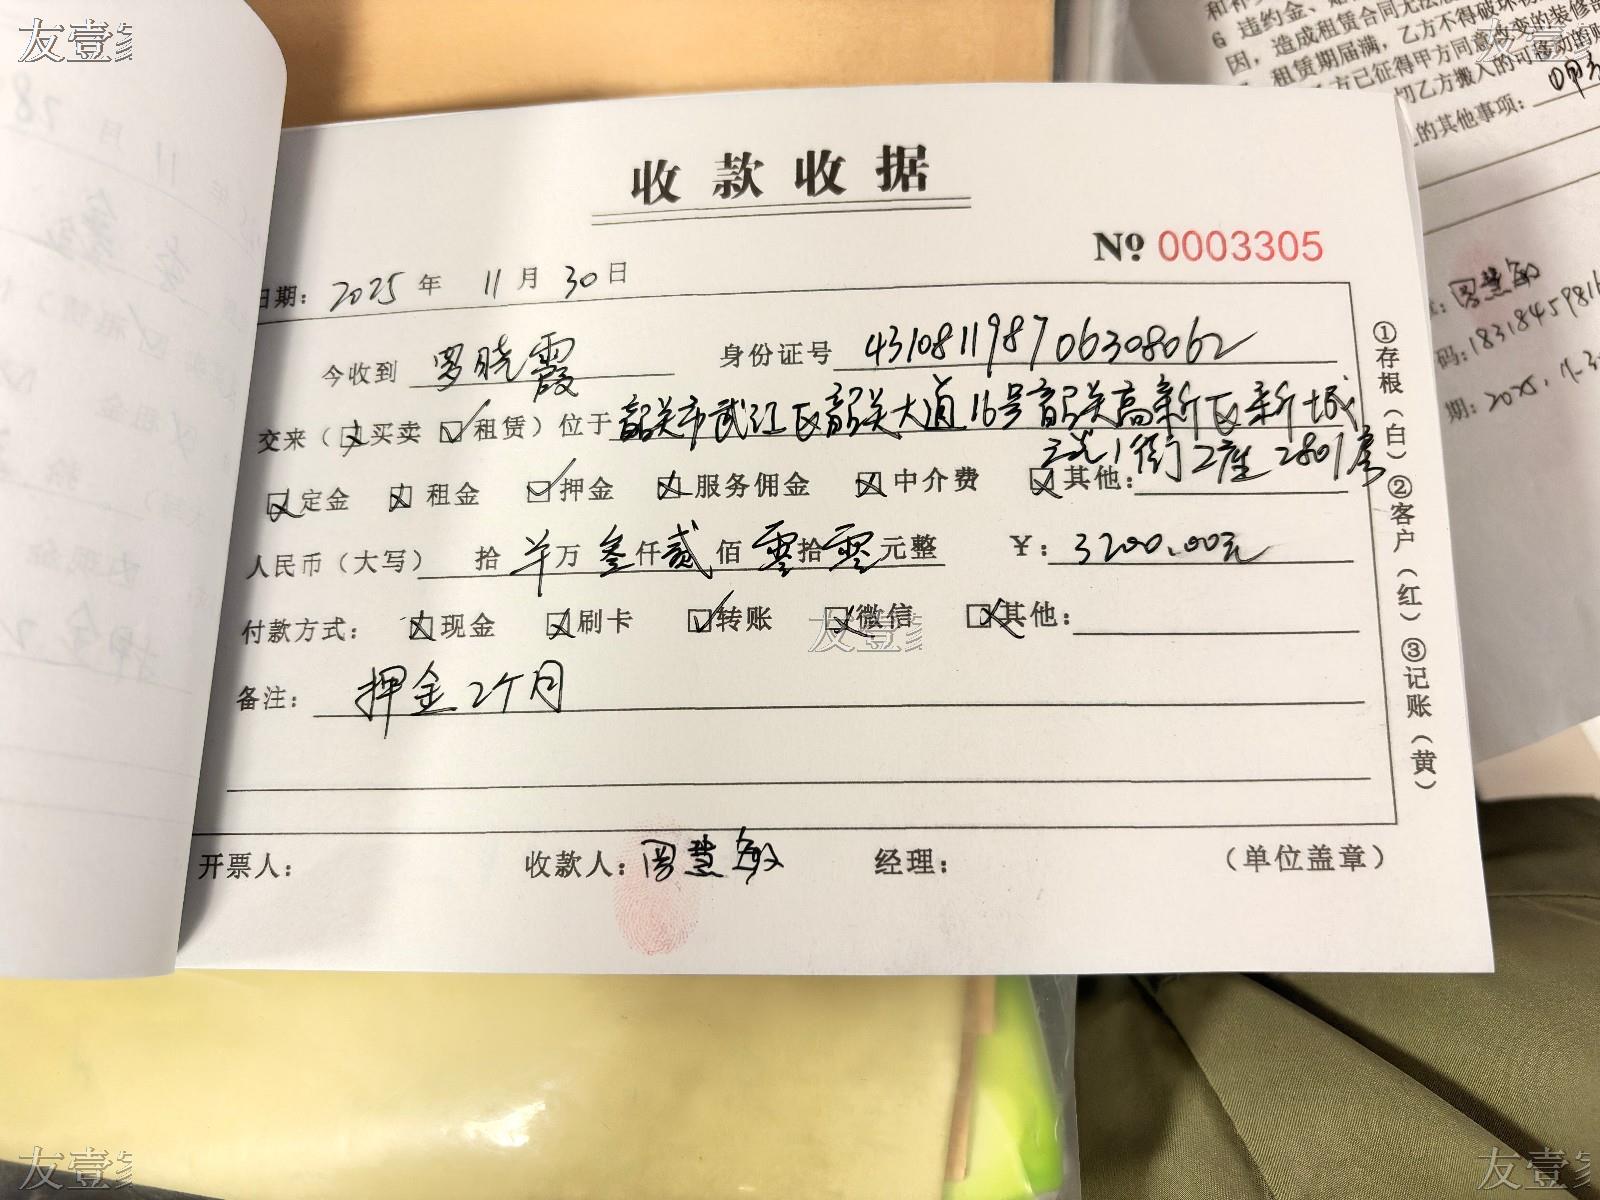 友壹家
友壹家
和补
6 违约金、
因，造成租赁合同无法
租赁期届满，乙方不得破坏
方已征得甲方同意改变的装修部
切乙方搬入的可移动的
的其他事项：
收款收据
№ 0003305
日期：2025年 11月30日
今收到 罗晓霞 身份证号 431081198706308062
交来（☒买卖 ☑租赁）位于韶关市武江区韶关大道16号韶关高新区新城
1街2座2801房
☒定金 ☒租金 ☑押金 ☒服务佣金 ☒中介费 ☒其他：
人民币（大写） 拾 万叁仟贰佰零拾零元整 ¥：3200.00元
付款方式： ☒现金 ☒刷卡 ☑转账 ☒微信 ☒其他：
友壹家
备注： 押金2个月
开票人： 收款人：周慧敏 经理： （单位盖章）
①存根（白）②客户（红）③记账（黄）
周慧敏
码：1831845981
期：2025.11.3
友壹家
友壹家